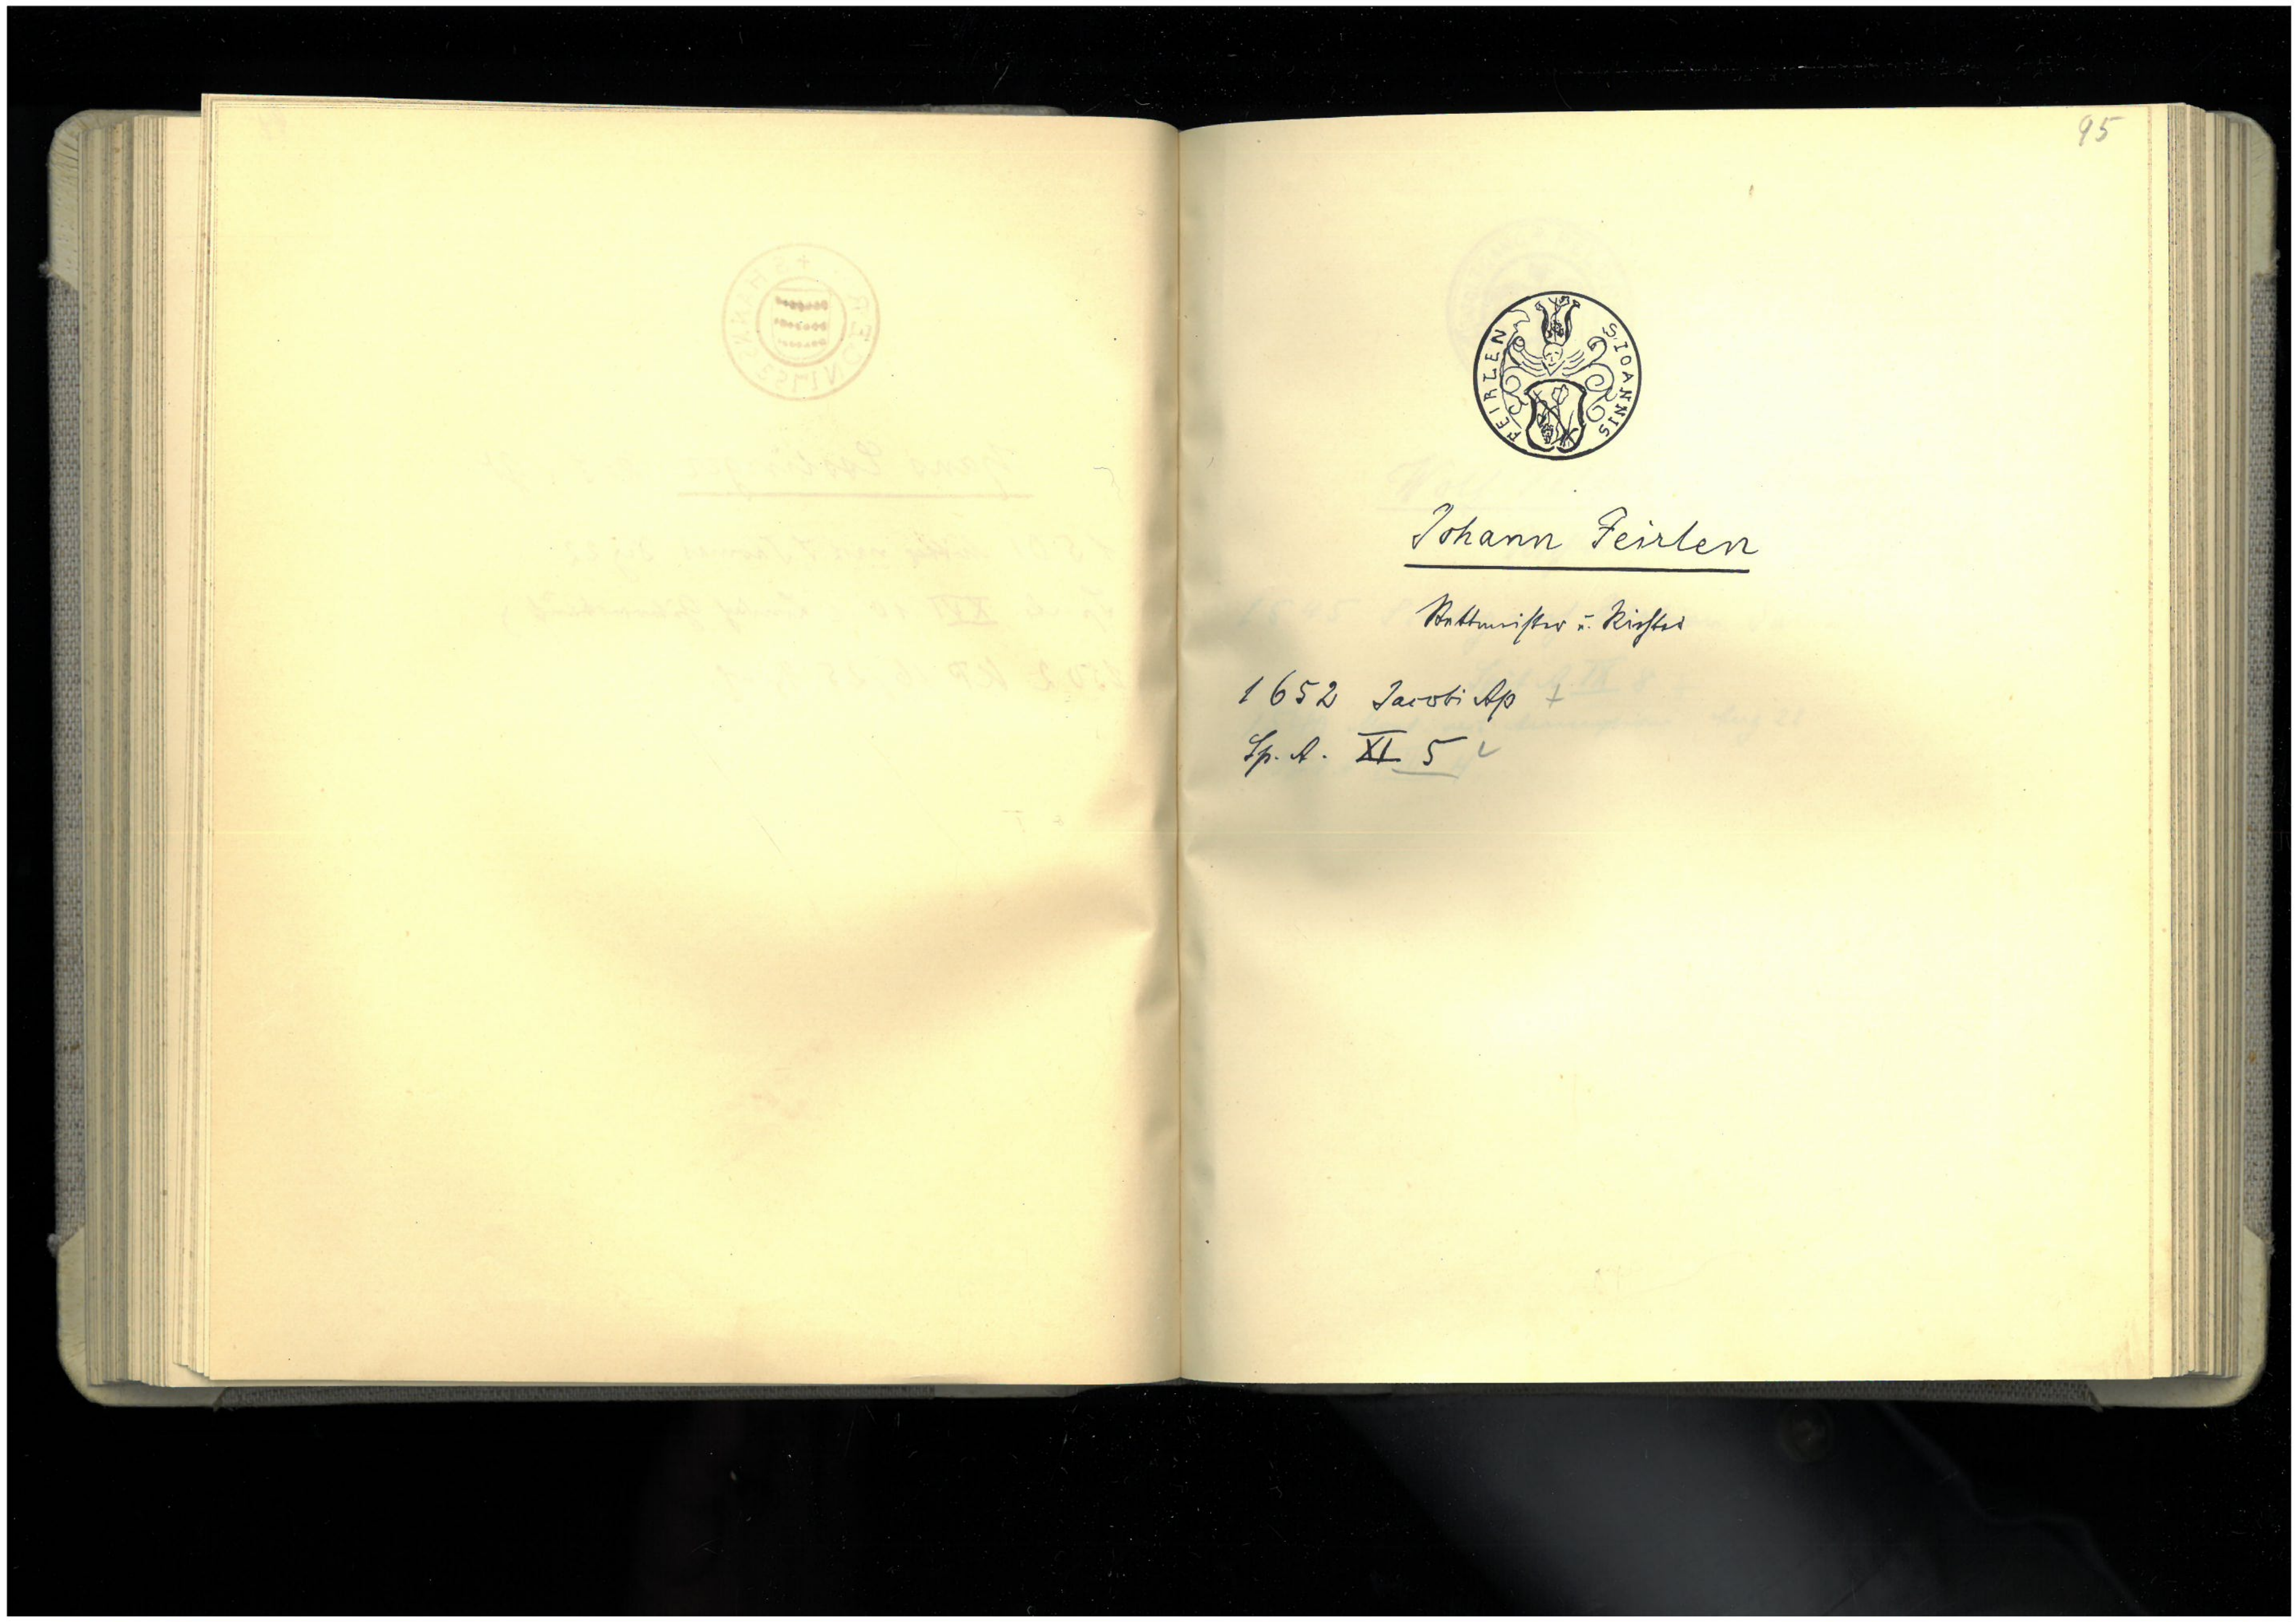 95
S. IOANNIS FEIRLEN
Johann Feirlen
Stattmeister u. Richter
1652 Jacobi Ap
Sp. A. XI 5